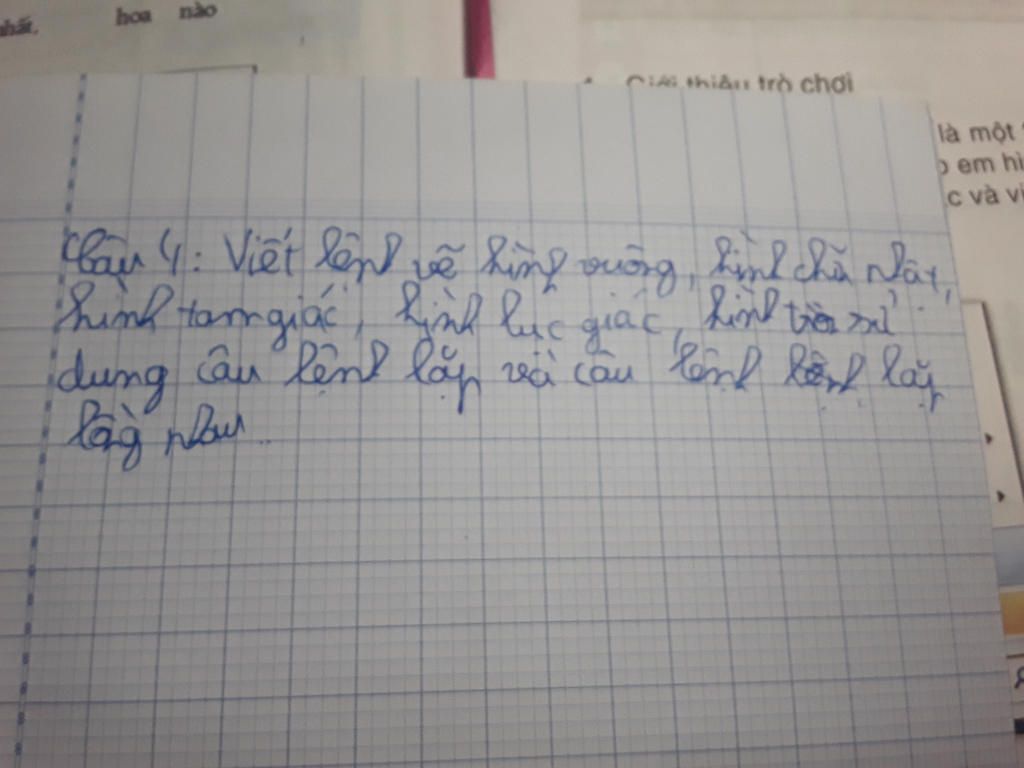 nhất.
hoa nào
Giới thiệu trò chơi
là một
em hì
c và vi
Câu 4: Viết lệnh vẽ hình vuông, hình chữ nhật,
hình tam giác, hình lục giác, hình tròn sử
dung câu lệnh lặp và câu lệnh lệnh lặp
lồng nhau